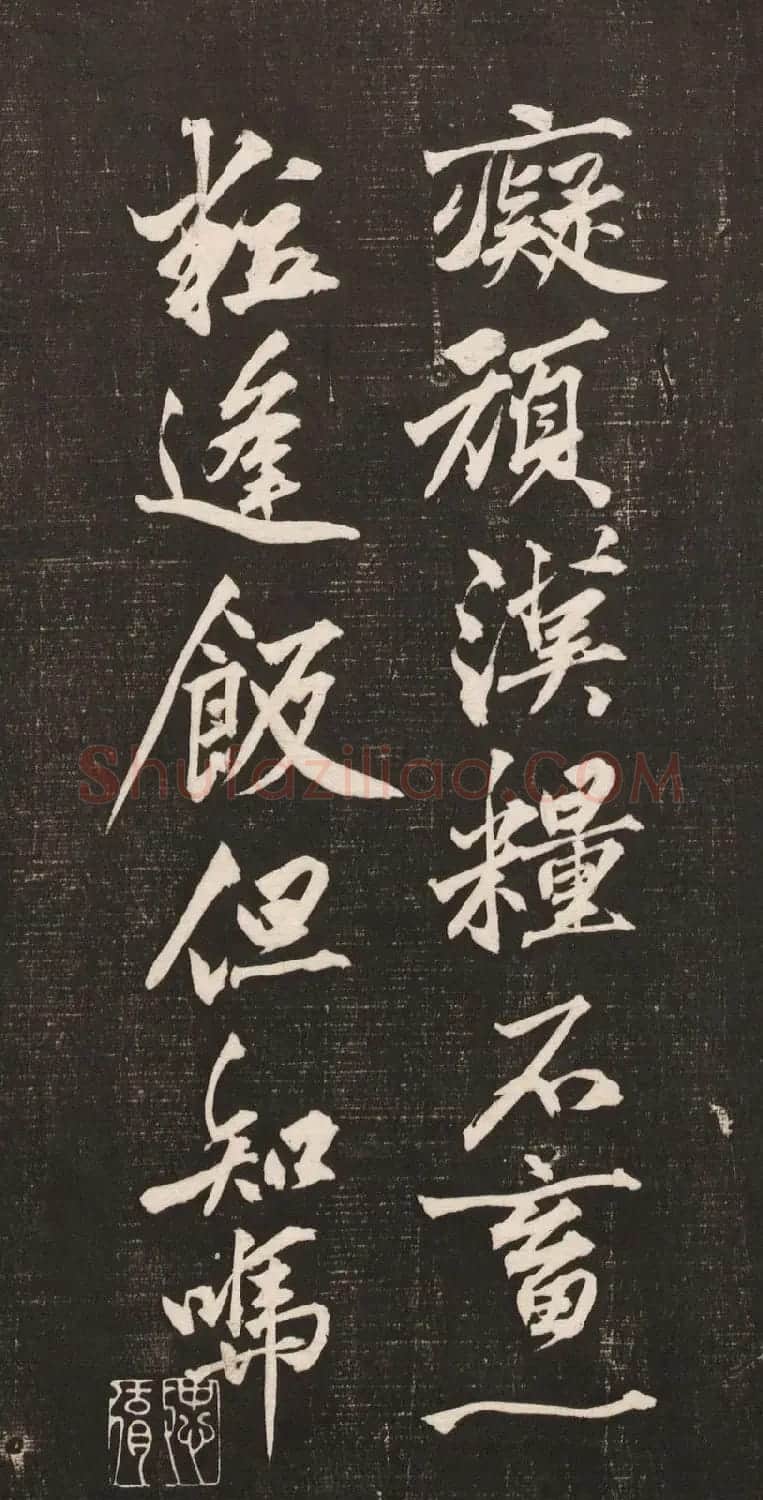 癡頑漢糧不畜一
粒逢飯但知
Shufaziliao.COM